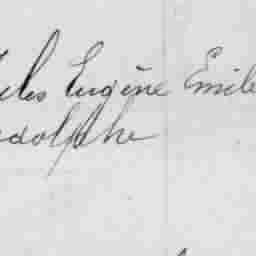 Jules Eugène Emile
Adolphe